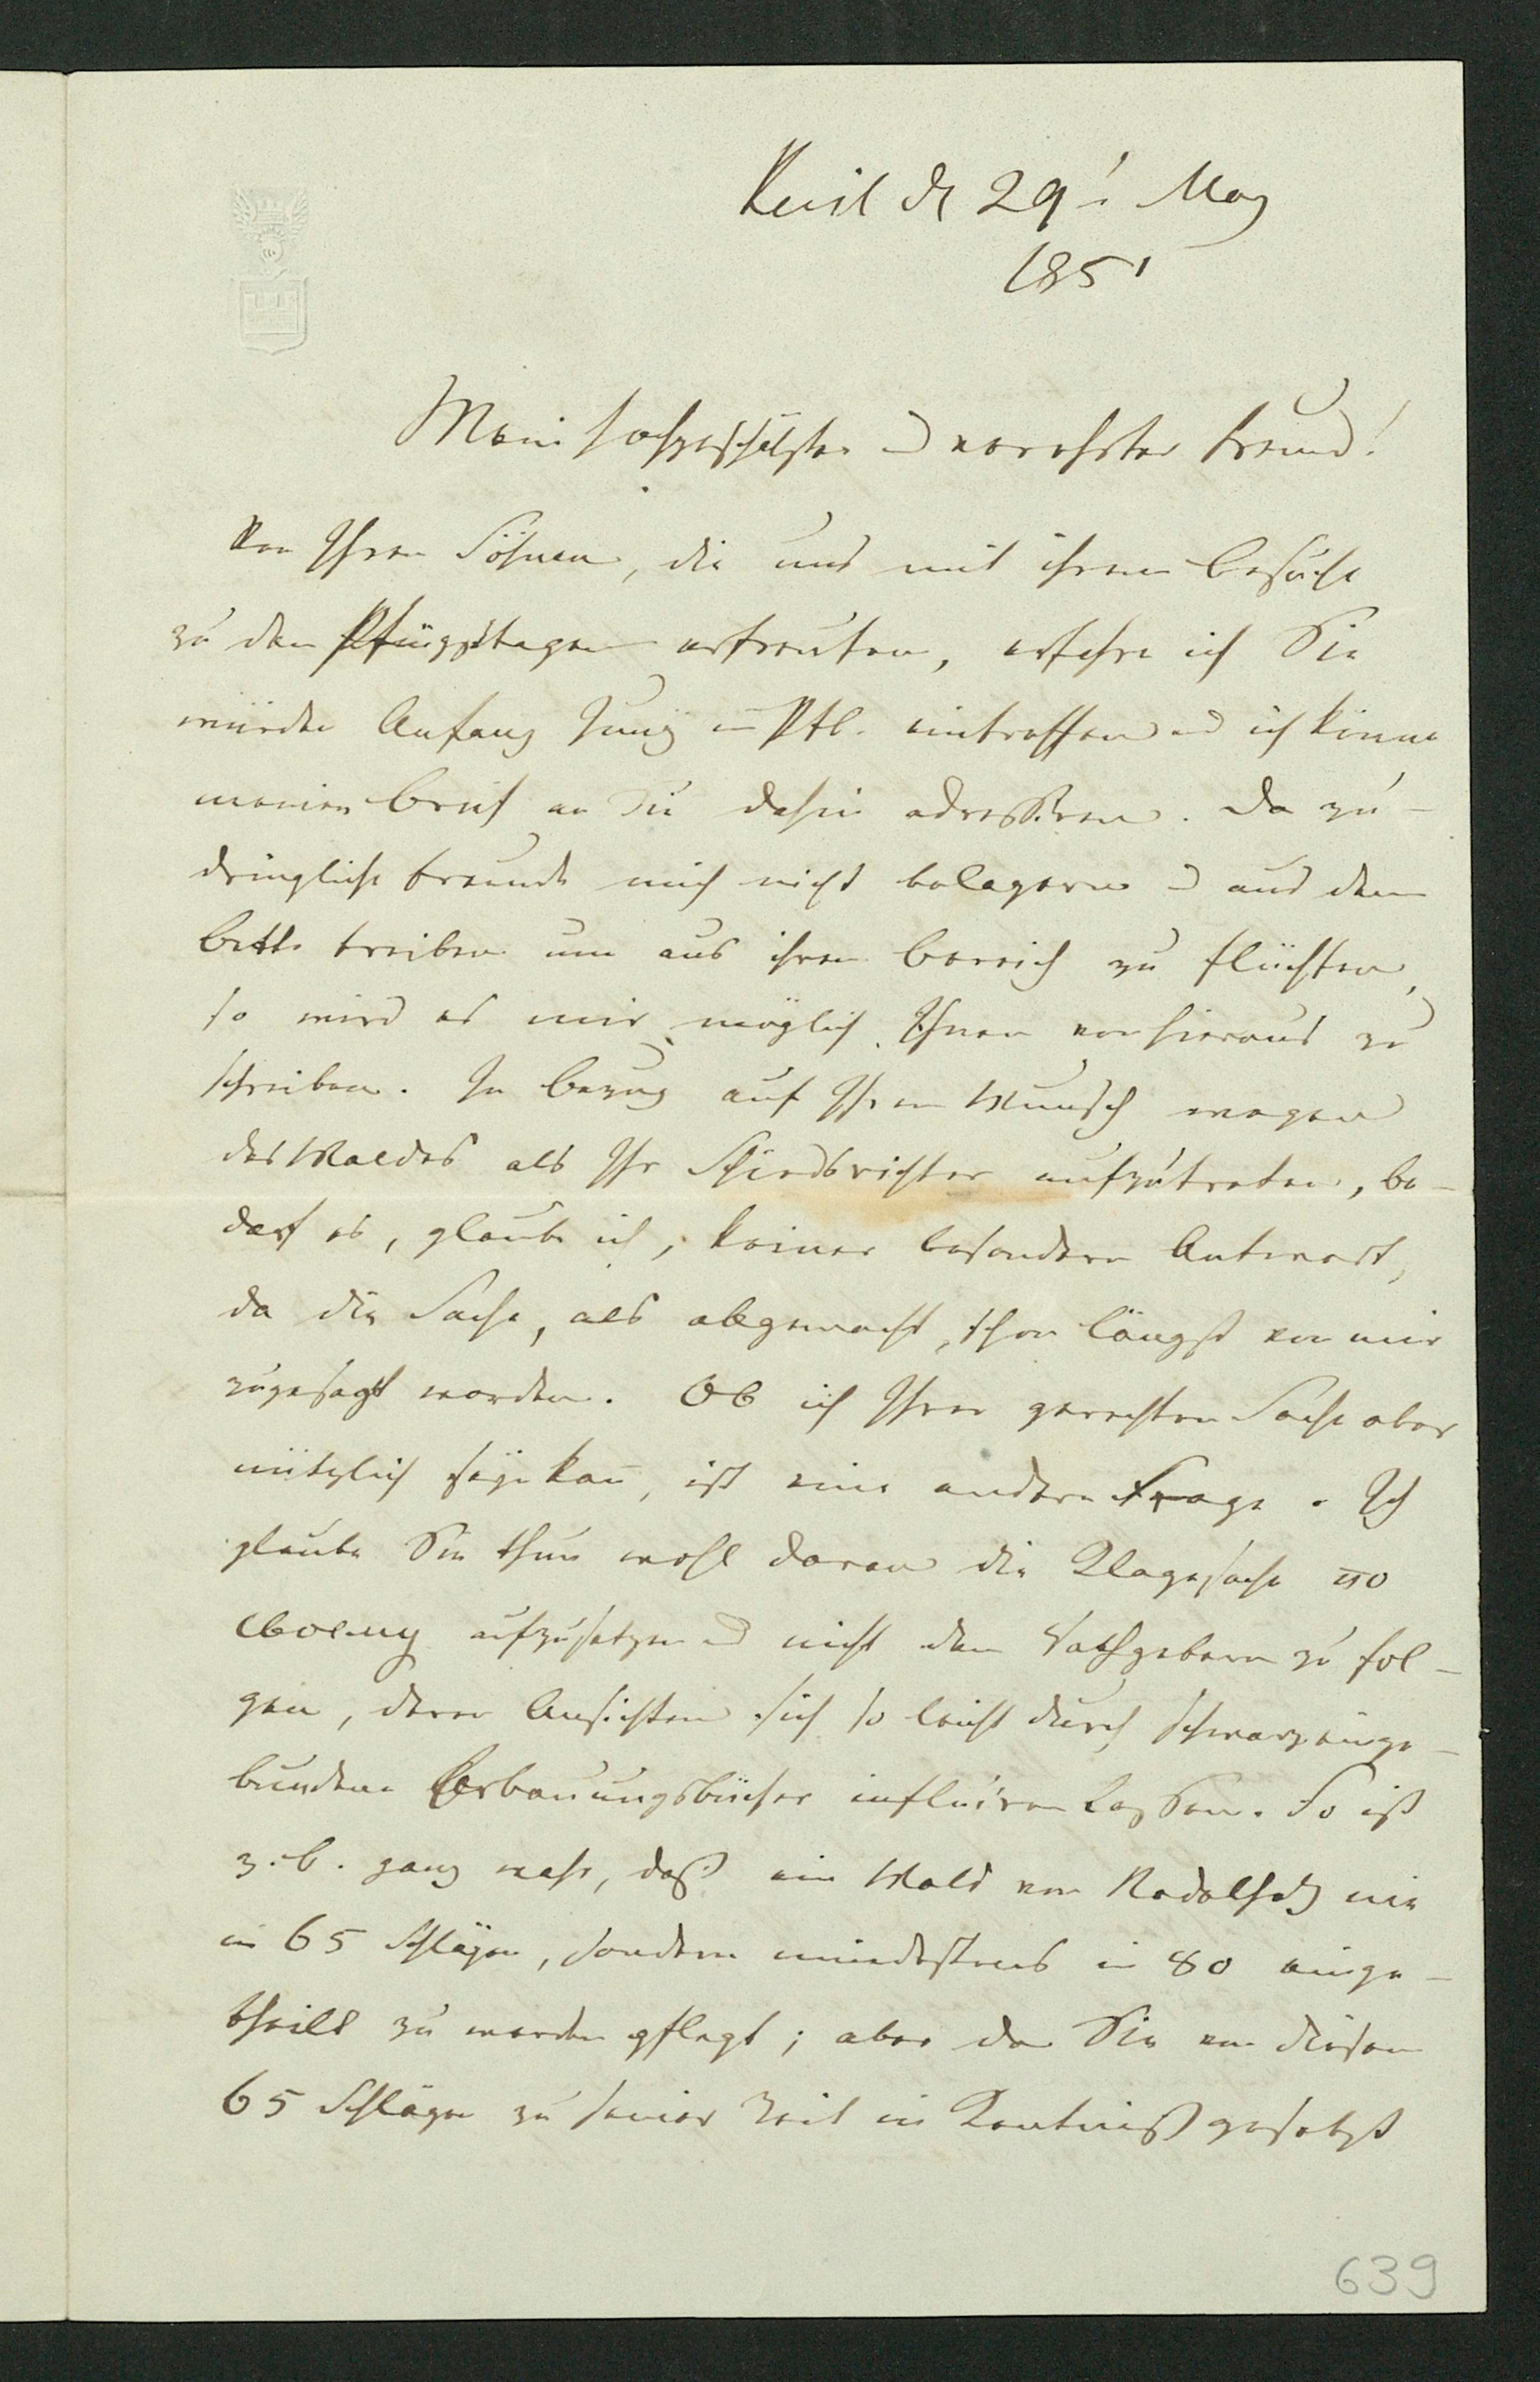 Keisl d 29' May
1851
Mein hochgeschätzter u verehrter Freund!
Von Ihren Söhnen, die uns mit ihrem Besuche
zu den Pfingsttagen erfreuten, erfahre ich Sie
würden Anfang Juny in Ptb. eintreffen und ich könne
meinen Brief an Sie dahin adressiren. Da zu-
dringliche Freunde mich nicht belagern u aus dem
Bette treiben um aus ihrem Bereich zu flüchten,
so wird es mir möglich Ihnen von hieraus zu
schreiben. In Bezug auf Ihren Wunsch wegen
des Waldes als Ihr Schiedsrichter aufzutreten, be-
darf es, glaube ich, keiner besondern Antwort,
da die Sache, als abgemacht, schon längst von mir
zugesagt worden. Ob ich Ihrer gerechten Sache aber
nützlich seyn kan̄, ist eine andere Frage. Ich
glaube Sie thun wohl daran die Klagesache по
своему aufzusetzen und nicht den Rathgebern zu fol-
gen, deren Ansichten sich so leicht durch schwarzeinge-
bundene Erbauungsbücher influiren lassen. So ist
z. B. ganz wahr, daß ein Wald von Nadelholz nie
in 65 Schläge, sondern mindestens in 80 einge-
theilt zu werden pflegt; aber da Sie von diesen
65 Schlägen zu seiner Zeit in Kentniß gesetzt
639